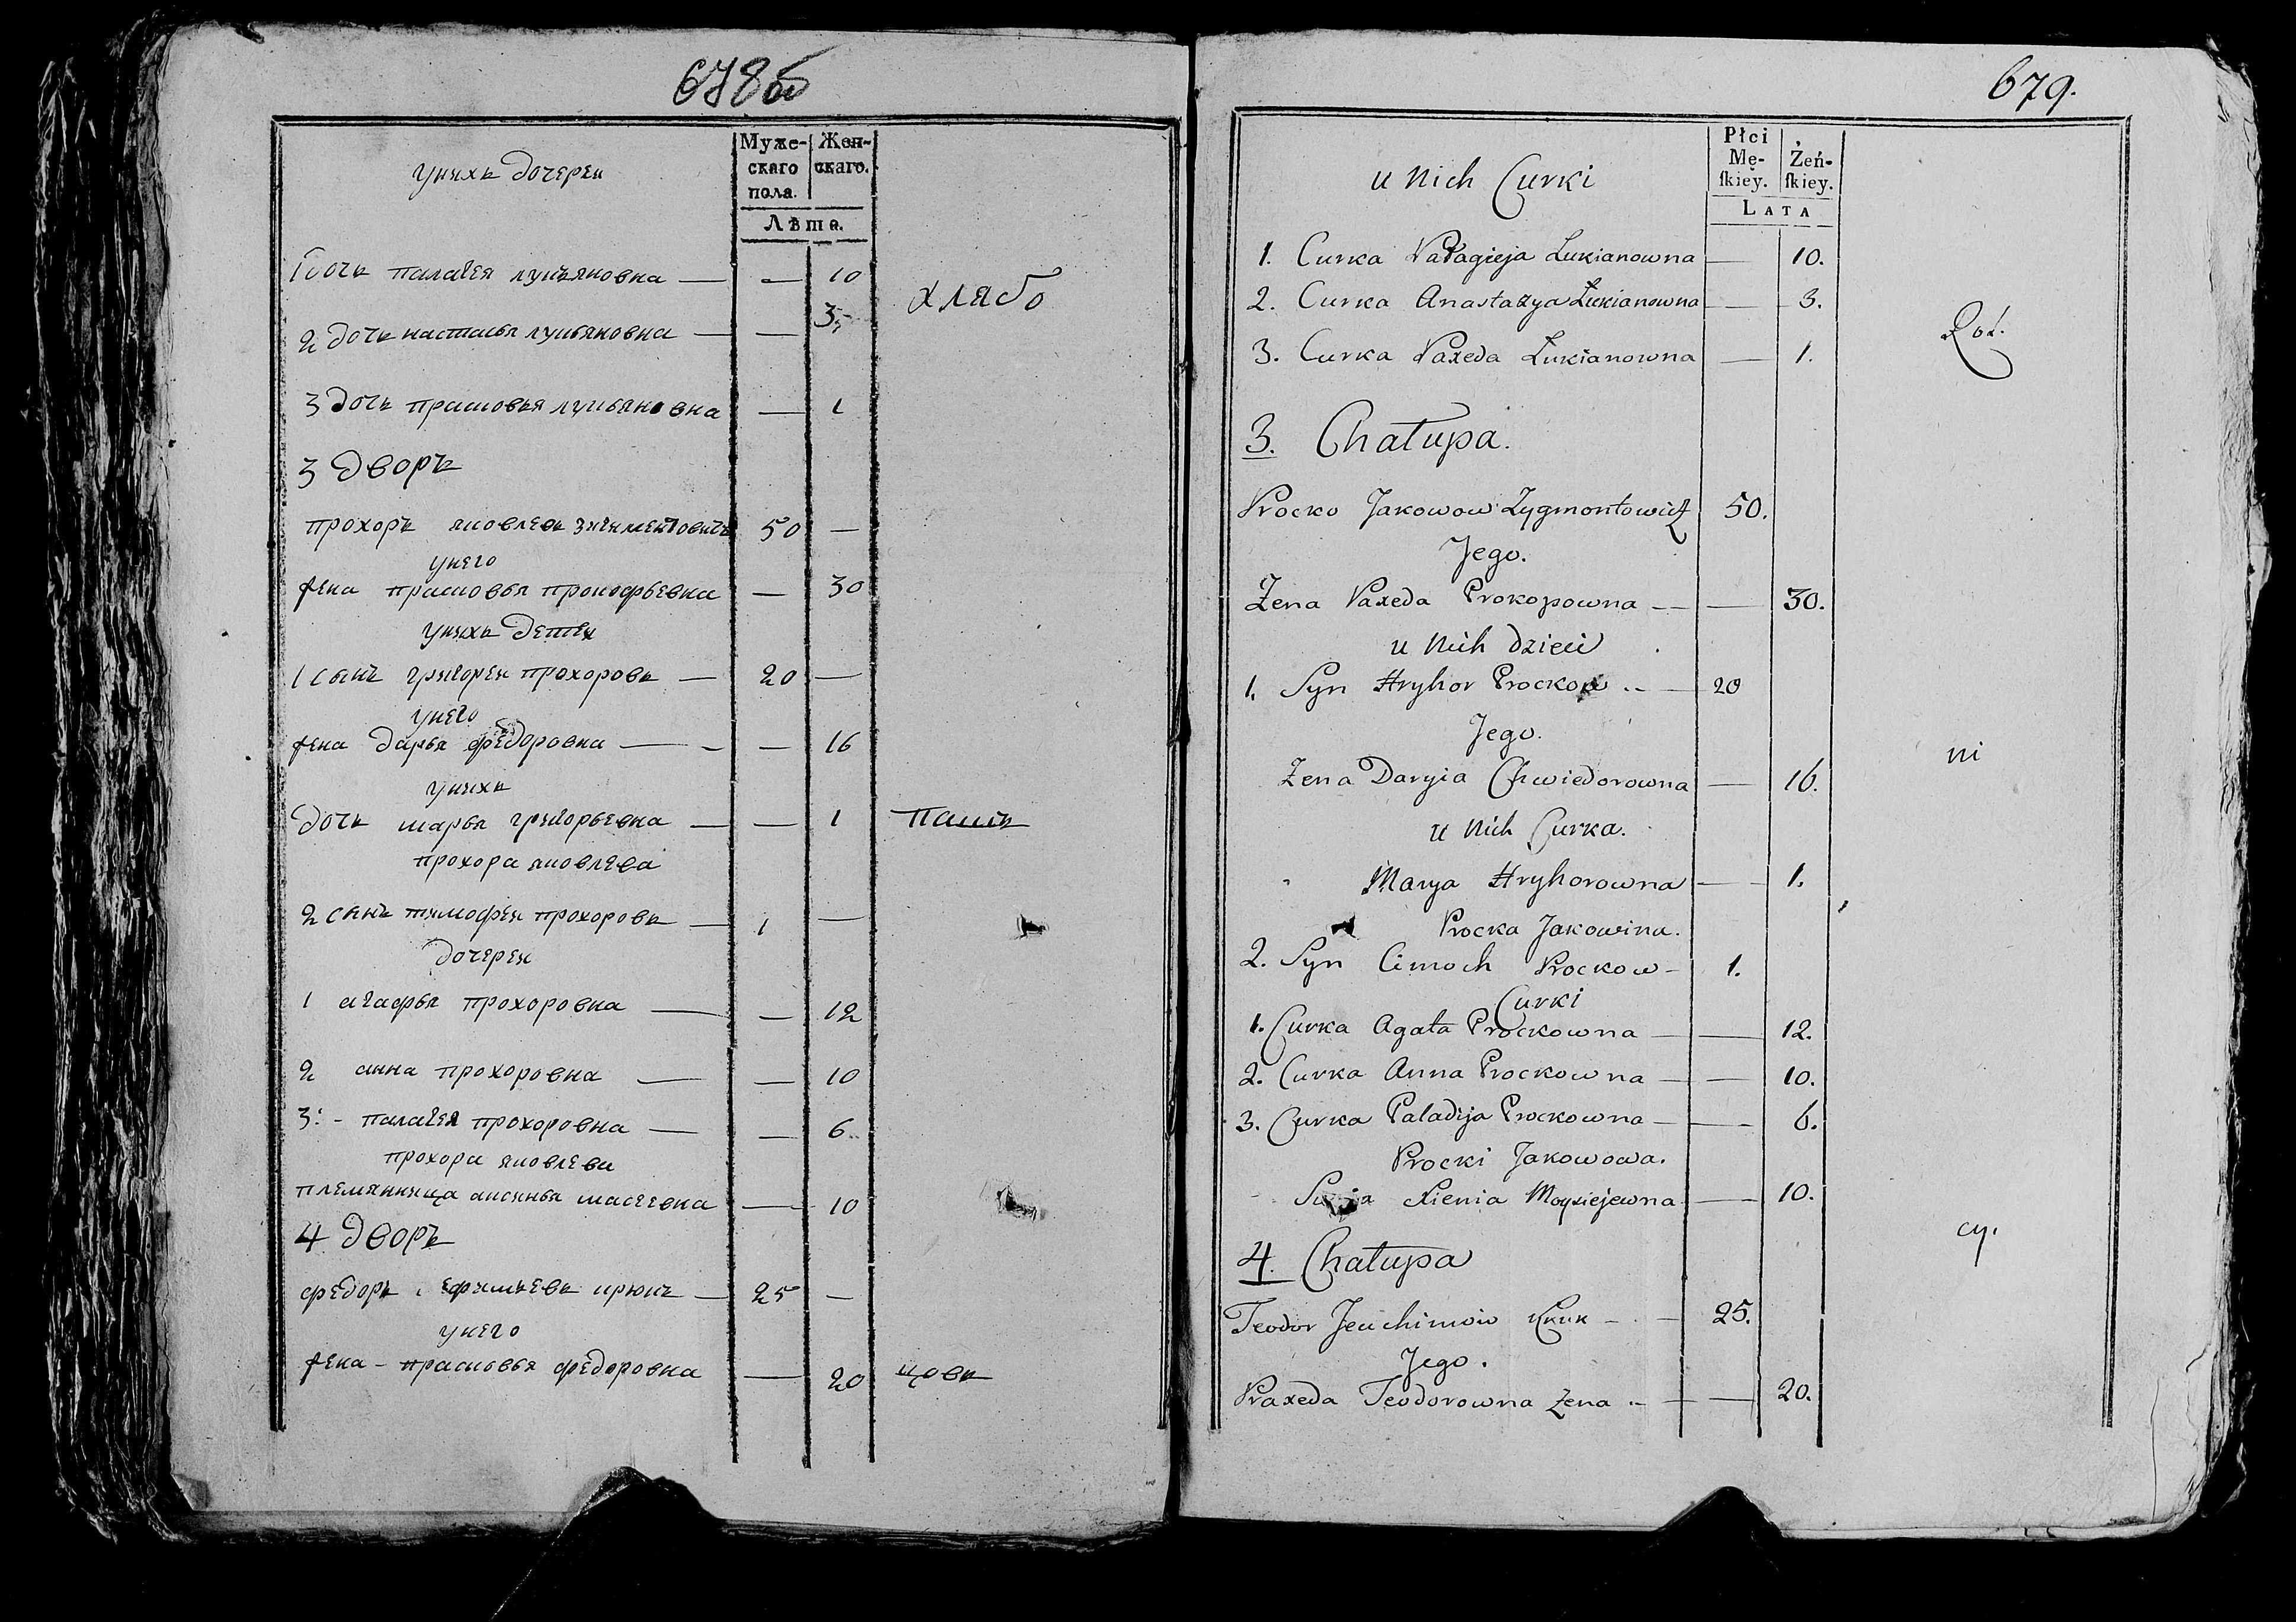 678об
Муже-
скаго
пола.
Жен-
скаго.
Лѣта.
унихъ дочереи
1 дочь палагея лукьяновна — — 10
хлябо
2 дочь настасья лукьяновна — — 3
3 дочь прасковья лукьяновна — 1
3 дворъ
прохоръ яковлевъ зигиментовичь 50 —
унего
жена прасковья прокофьевна — 30
унихъ детеи
1 сынъ григореи прохоровъ — 20 —
унего
жена дарья федоровна — — 16
унихъ
дочь марья григорьевна — — 1 пашь
прохора яковлева
2 сынъ тимофеи прохоровъ — 1 —
дочереи
1 агафья прохоровна — — 12
2 анна прохоровна — — 10
3 - палагея прохоровна — — 6
прохора яковлева
племянница аксинья масеевна — 10
4 дворъ
федоръ ефимьевъ крюкъ — 25 —
унего
жена - прасковья федоровна — 20 цовъ
679.
Płci
Mę-
skiey.
Żeń-
skiey.
LATA
u Nich Curki
1. Curka Pałagieja Łukianowna — 10.
2. Curka Anastazya Łukianowna — 3.
3. Curka Paxeda Łukianowna — 1.
3. Chałupa.
Procko Jakowow Zygmontowicz 50.
Jego.
Żena Paxeda Prokopowna — — 30.
u Nich dzieci
1. Syn Hryhor Prockow — 20
Jego.
Żena Daryia Chwiedorowna — 16.
ni
u Nich Curka.
Marya Hryhorowna — 1.
Procka Jakowina.
2. Syn Cimoch Prockow - 1.
Curki
1. Curka Agata Prockowna — — 12.
2. Curka Anna Prockowna — — 10.
3. Curka Paladija Prockowna — — 6.
Procki Jakowowa.
Xienia Moysiejewna — 10.
cy.
4. Chałupa
Teodor Jeuchimow Kruk — 25.
Jego.
Praxeda Teodorowna Żena — — 20.